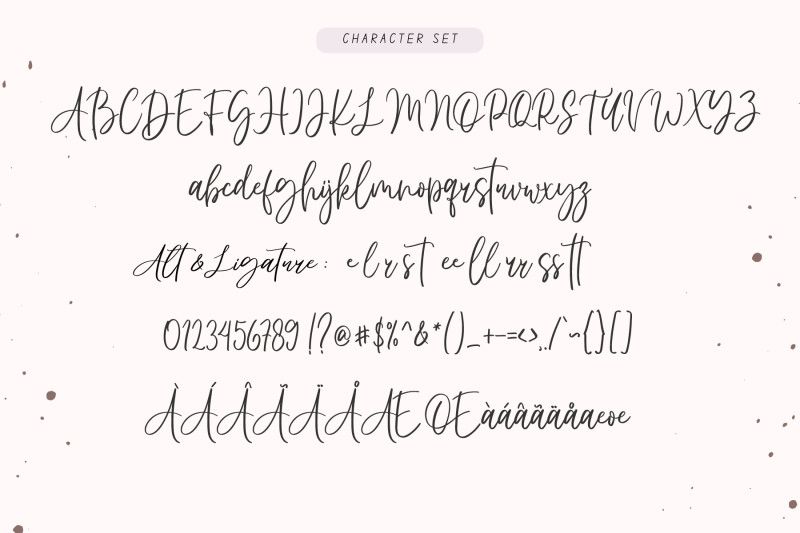 CHARACTER SET
ABCDEFGHIJKLMNOPQRSTUVWXYZ
abcdefghijklmnopqrstuvwxyz
Alt & Ligature : e l r s t ee ll rr ss tt
0123456789 !?@#$%^&*()_+-=<>,./`~{}[]
ÀÁÂÃÄÅÆŒàáâãäåæœ